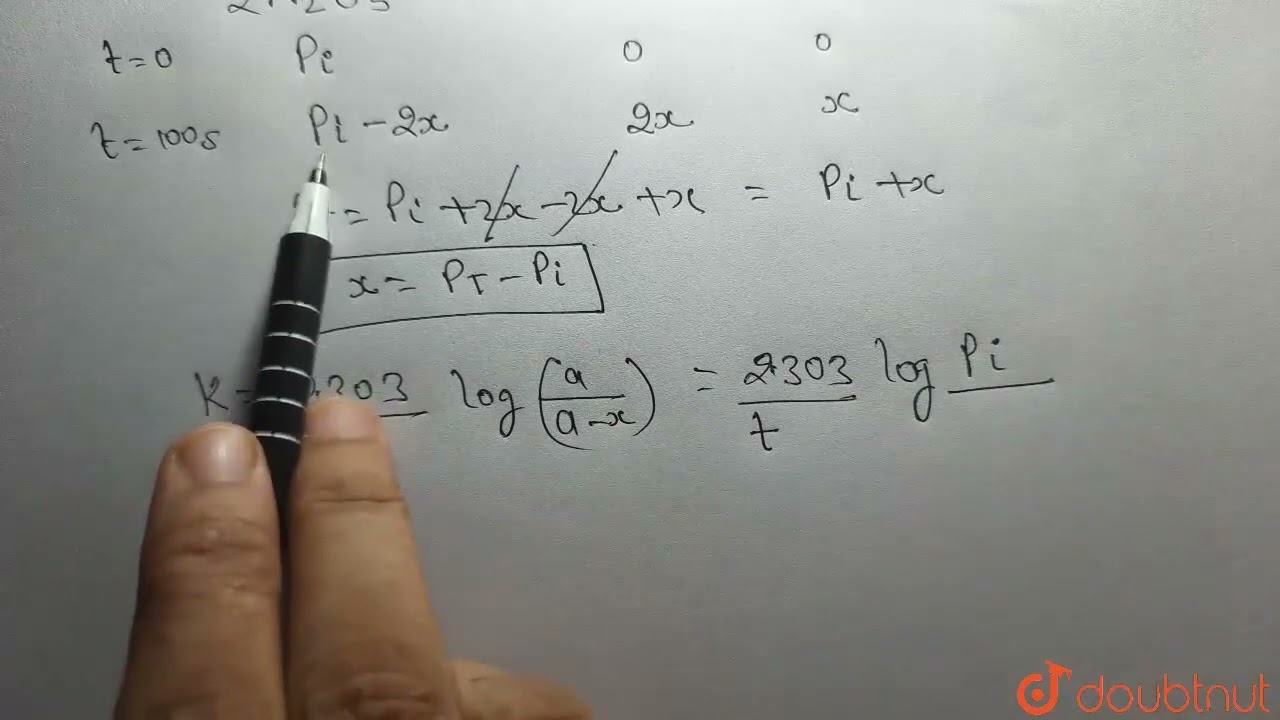 t=0 Pi 0 0
t=100s Pi-2x 2x x
= Pi +2x-2x +x = Pi +x
x = PT - Pi
K= 2303 log (a/a-x) = 2303/t log Pi
doubtnut